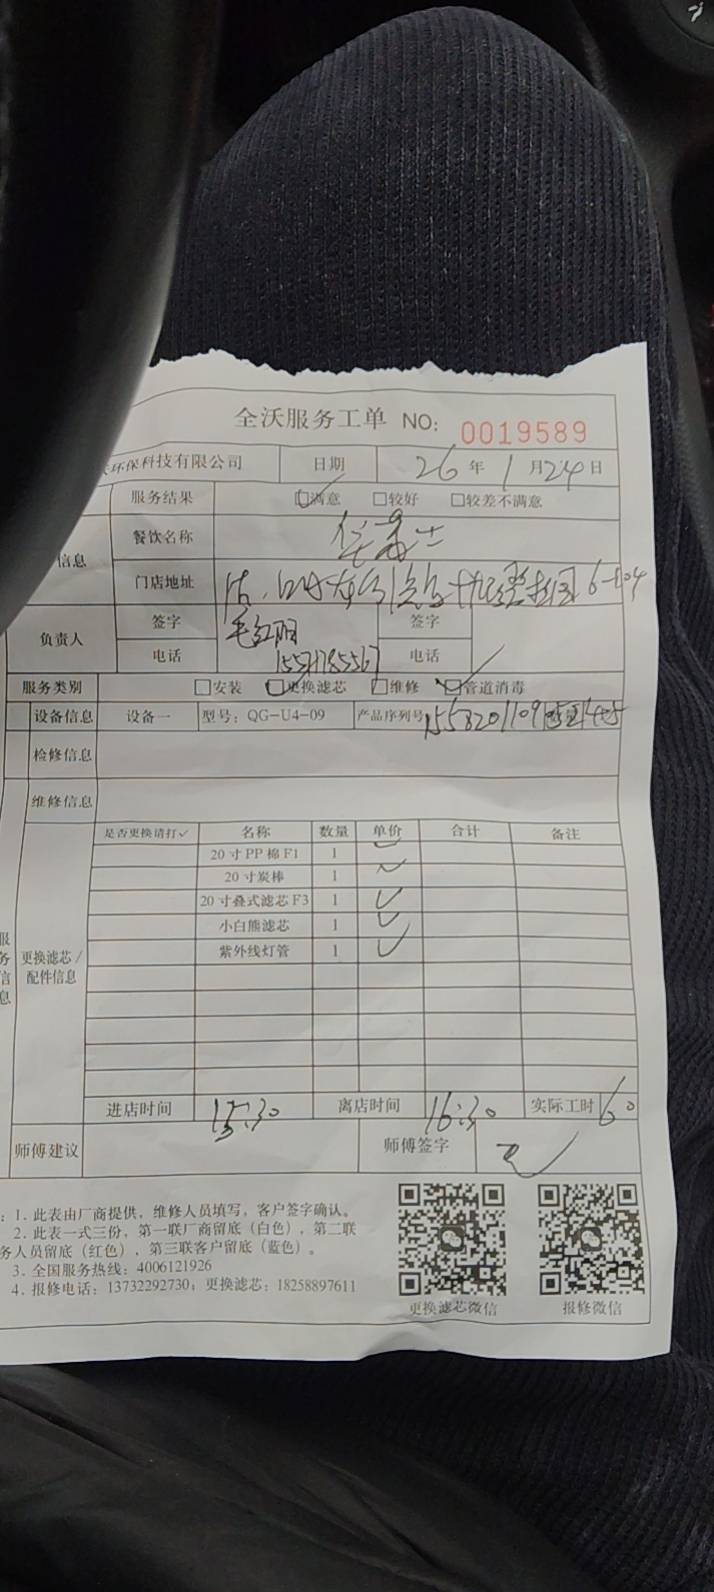 全沃服务工单 NO: 0019589
环保科技有限公司 日期 26年1月24日
服务结果 满意 较好 较差不满意
信息 餐饮名称
门店地址
负责人 签字 毛红丽 签字
电话 电话
服务类别 安装 更换滤芯 维修 管道消毒
设备信息 设备一 型号: QG-U4-09 产品序列号
检修信息
维修信息
是否更换请打✓ 名称 数量 单价 合计 备注
20寸PP棉F1 1 ✓
20寸炭棒 1 ✓
20寸叠式滤芯F3 1 ✓
小白熊滤芯 1 ✓
紫外线灯管 1 ✓
服务信息 更换滤芯/
配件信息
进店时间 15:30 离店时间 16:30 实际工时 60
师傅建议 师傅签字
: 1. 此表由厂商提供，维修人员填写，客户签字确认。
2. 此表一式三份，第一联厂商留底（白色），第二联
务人员留底（红色），第三联客户留底（蓝色）。
3. 全国服务热线: 4006121926
4. 报修电话: 13732292730; 更换滤芯: 18258897611
更换滤芯微信 报修微信